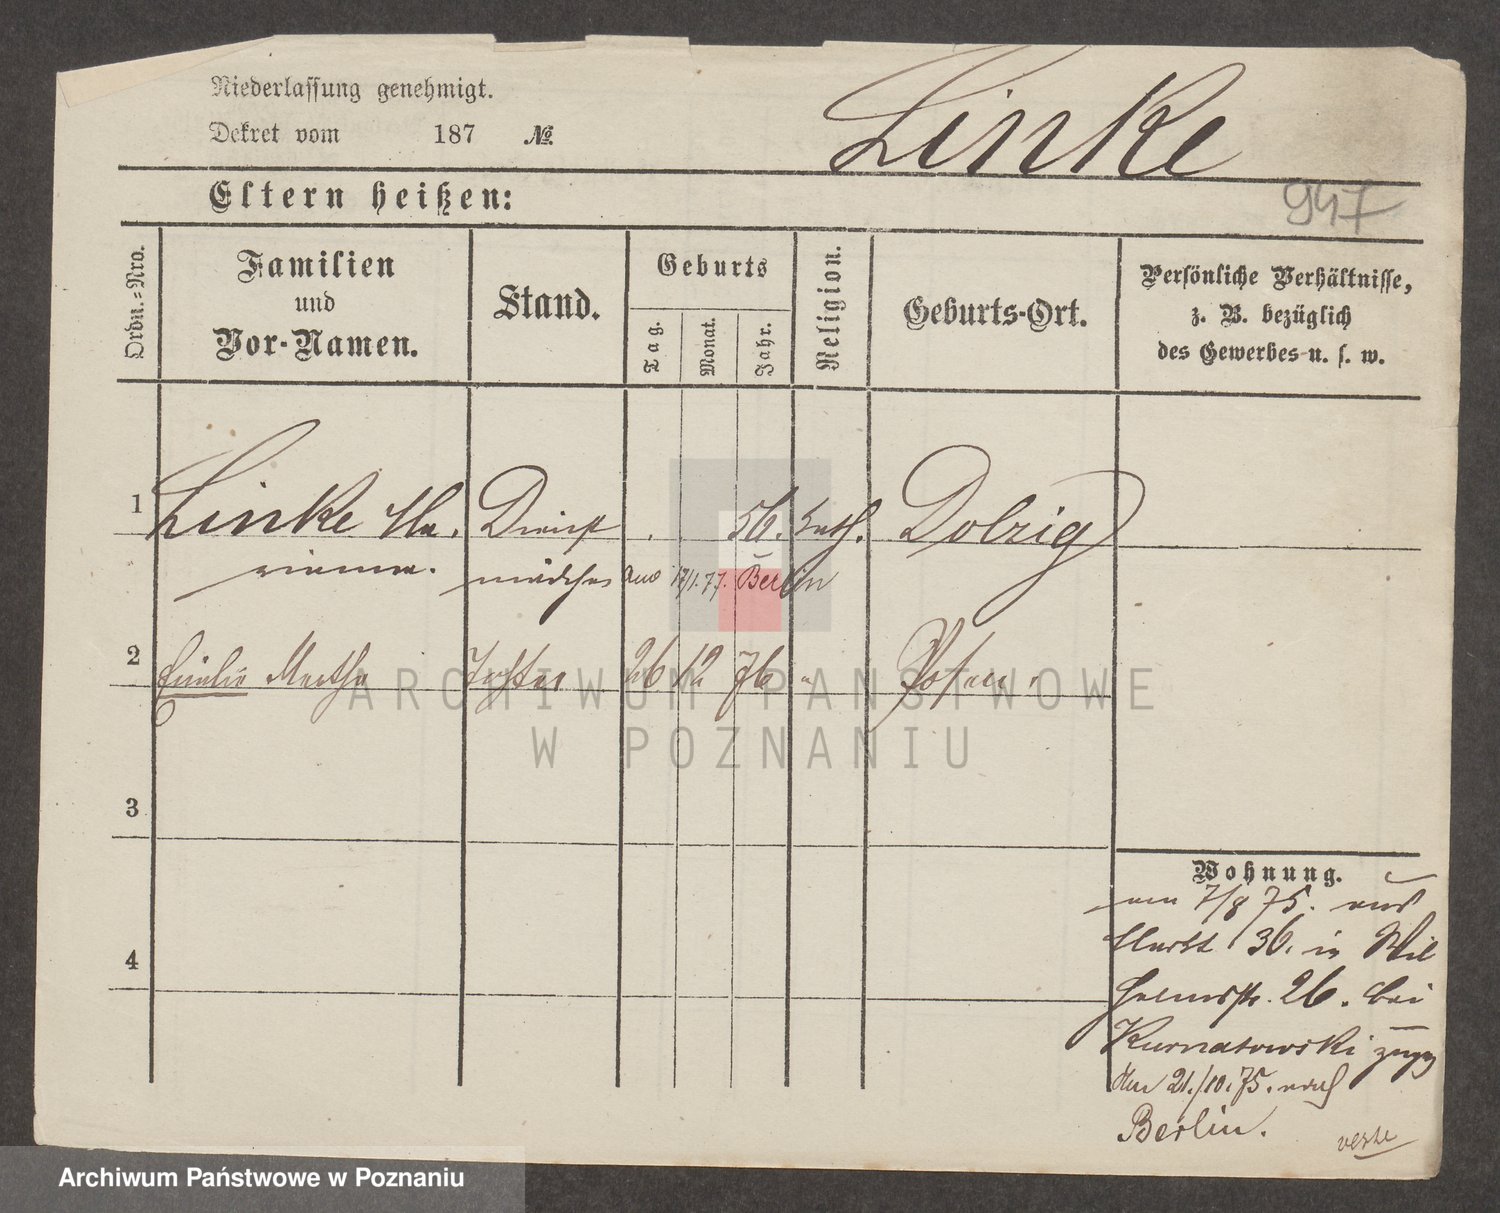 Niederlassung genehmigt.
Dekret vom 187 №
Linke
Eltern heißen:
947
Ordn.-Nro.
Familien
und
Vor-Namen.
Stand.
Geburts
Tag.
Monat.
Jahr.
Religion.
Geburts-Ort.
Persönliche Verhältnisse,
z. B. bezüglich
des Gewerbes u. s. w.
1 Linke Ma. Dienst 56. kath. Dolzig
rianna. mädchen aus 17/1.77. Berlin
2 Emilie Martha Tochter 26 12 76 " Posen
3
4
Wohnung.
am 7/8 75. aus
Markt 36. in Wil
helmstr. 26. bei
Kurnatowski zugz
den 21./10.75. nach
Berlin.
ARCHIWUM PAŃSTWOWE
W POZNANIU
Archiwum Państwowe w Poznaniu